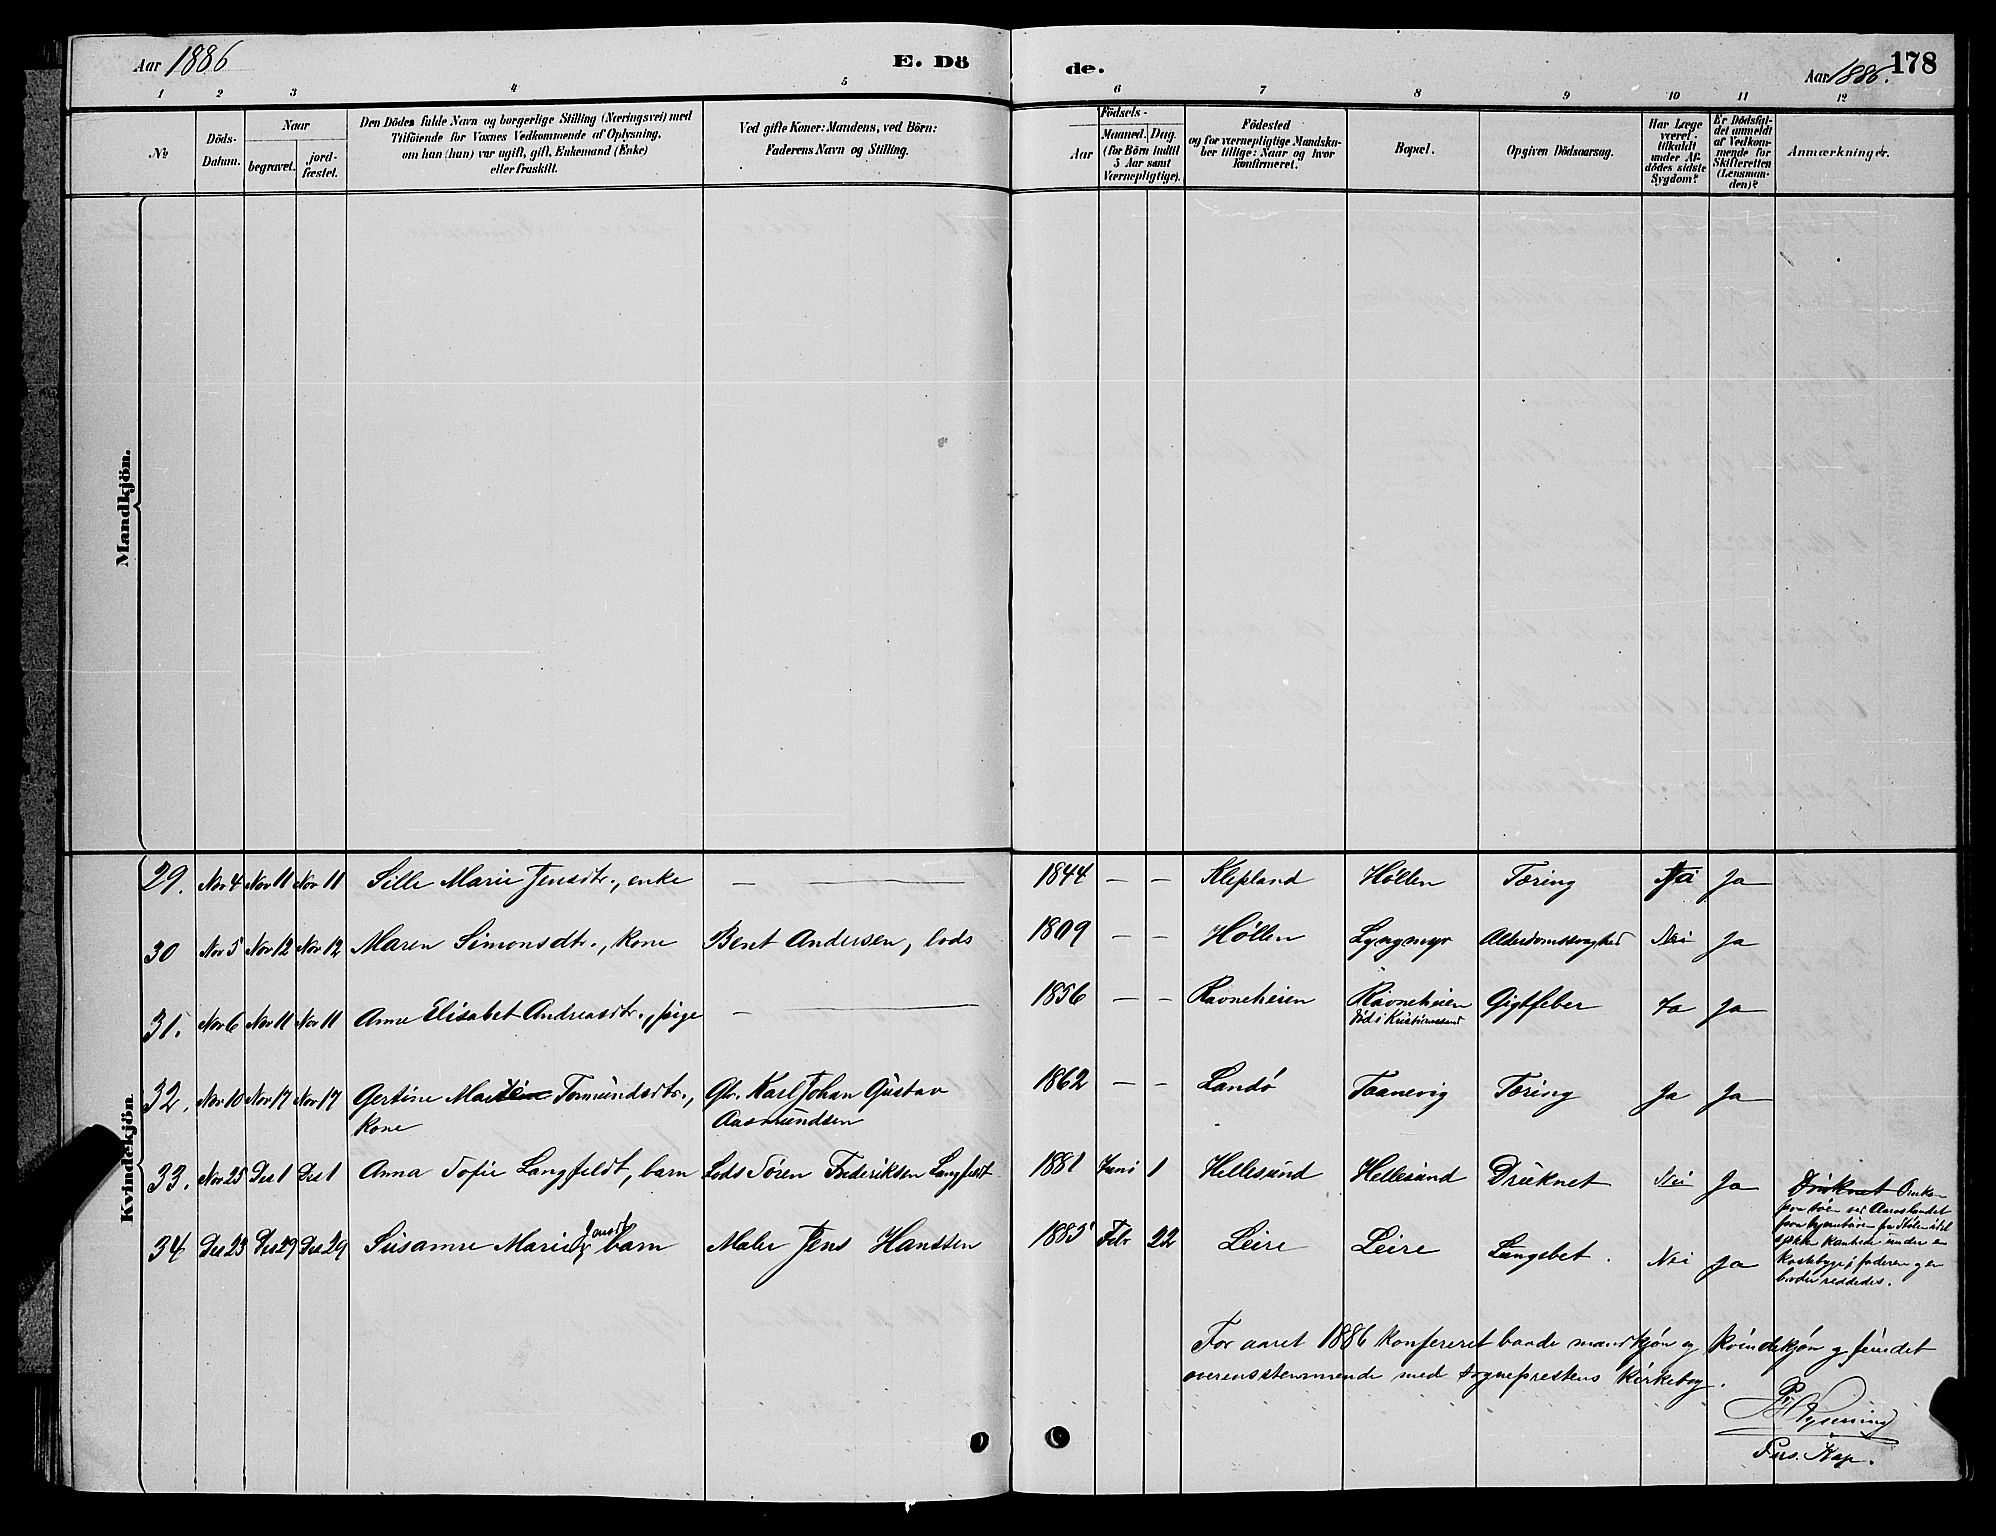 Aar 1886
E. Dö
de.
Aar 1886.
178
1 2 3 4 5 6 7 8 9 10 11 12
No
Döds-
Datum.
Naar
begravet.
jord-
fæstet.
Den Dödes fulde Navn og borgerlige Stilling (Næringsvei) med
Tilföiende for Voxnes Vedkommende af Oplysning,
om han (hun) var ugift, gift, Enkemand (Enke)
eller fraskilt.
Ved gifte Koner: Mandens, ved Börn:
Faderens Navn og Stilling.
Födsels-
Aar
Maaned. Dag.
(for Börn indtil
5 Aar samt
Værnepligtige).
Födested
og for værnepligtige Mandska-
ber tillige: Naar og hvor
konfirmeret.
Bopæl.
Opgiven Dödsaarsag.
Har Læge
været
tilkaldt
under Af-
dödes sidste
Sygdom?
Er Dödsfal-
det anmeldt
af Vedkom-
mende for
Skifteretten
(Lensman-
den)?
Anmærkninger.
Mandkjön.
Kvindekjön.
29. Nov 4 Nov 11 Nov 11 Sille Marie Jensdtr., enke — — 1844 — — Klepland Høllen Tæring Ja Ja
30 Nov 5 Nov 12 Nov 12 Maren Simonsdtr., kone Bent Andersen, lods 1809 — — Høllen Lyngmyr Alderdomssvaghed Nei Ja
31. Nov 6 Nov 11 Nov 11 Anne Elisabet Andreasdtr., pige — — 1856 — — Ravneheien Ravneheien Gigtfeber Ja Ja
død i Kristianssand
32. Nov 10 Nov 17 Nov 17 Gertine Tomundsdtr., Gbr. Karl Johan Gustav 1862 — — Landø Taanevig Tæring Ja Ja
kone Aasmundsen
33. Nov 25 Des 1 Des 1 Anna Sofie Langfeldt, barn Lods Søren Frederiksen Langfeldt 1881 Juni 1 Hellesund Hellesund Druknet Nei Ja
Druknet
34 Des 23 Des 29 Des 29 Susanne Marie Jensdtr barn Maler Jens Hanssen 1885 Febr 22 Leire Leire Lungebet. Nei Ja
faderen og en
broder reddedes.
For aaret 1886 konfereret baade mandkjøn og kvindekjøn og fundet
overensstemmende med sogneprestens kirkebog.
Pers. Kap.